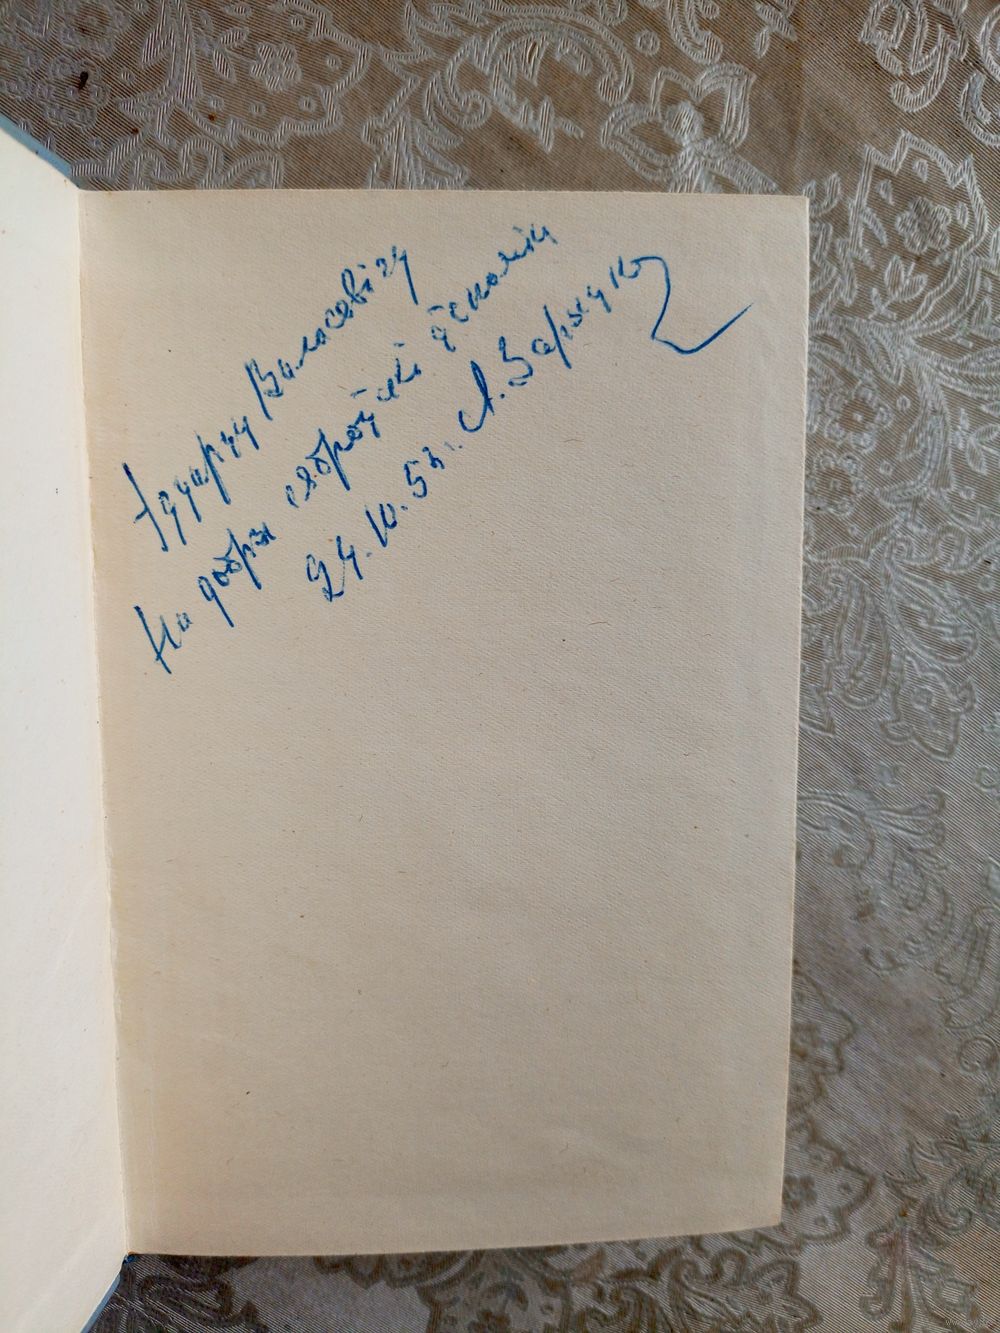 Эдуарду Валасевічу
На добры сяброўскі ўспамін
А. Зарыцкі
24.10.53 г.